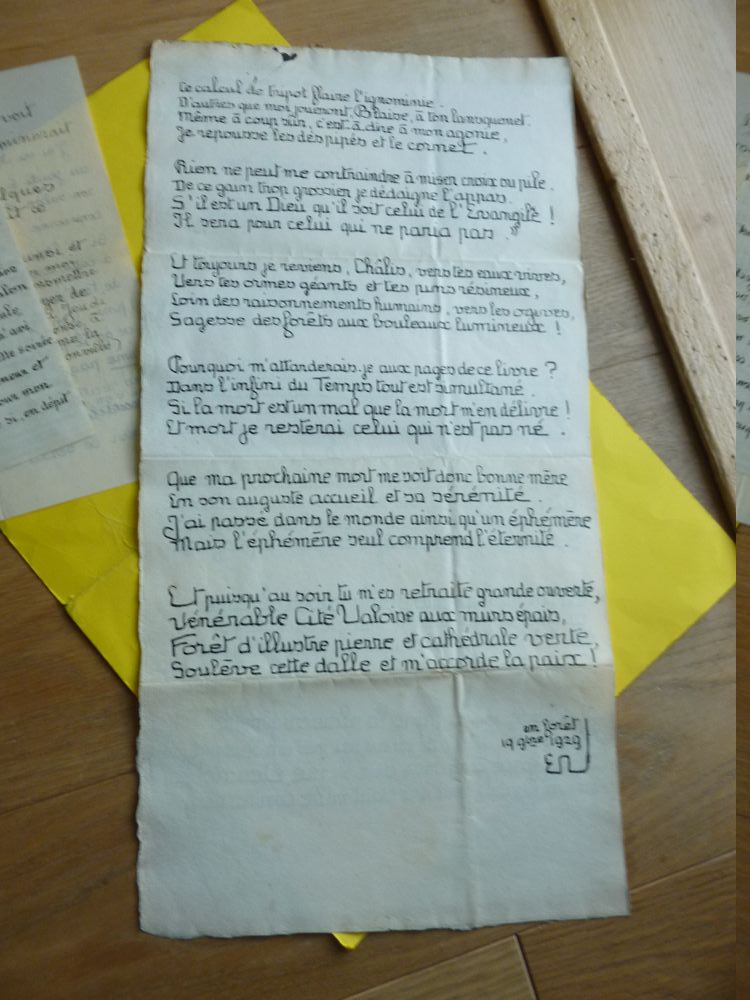 Ce calcul de tripot flaire l'ignominie.
D'autres que moi joueront, Blaise, à ton lansquenet.
Même à coup sûr, c'est-à-dire à mon agonie,
Je repousse les dés pipés et le cornet.
Rien ne peut me contraindre à miser croix ou pile.
De ce gain trop grossier je dédaigne l'appas.
S'il est un Dieu qu'il soit celui de l'Evangile !
Il sera pour celui qui ne paria pas."
Et toujours je reviens, Châlis, vers tes eaux vives,
Vers tes ormes géants et tes pins résineux,
Loin des raisonnements humains, vers les ogives,
Sagesse des forêts aux bouleaux lumineux !
Pourquoi m'attarderais-je aux pages de ce livre ?
Dans l'infini du Temps tout est simultané.
Si la mort est un mal que la mort m'en délivre !
Et mort je resterai celui qui n'est pas né.
Que ma prochaine mort me soit donc bonne mère
En son auguste accueil et sa sérénité.
J'ai passé dans le monde ainsi qu'un éphémère
Mais l'éphémère seul comprend l'éternité.
Et puisqu'au soir tu m'es retraite grande ouverte,
Vénérable Cité Valoise aux murs épais,
Forêt d'illustre pierre et cathédrale verte,
Soulève cette dalle et m'accorde la paix !
en forêt
19 9bre 1929